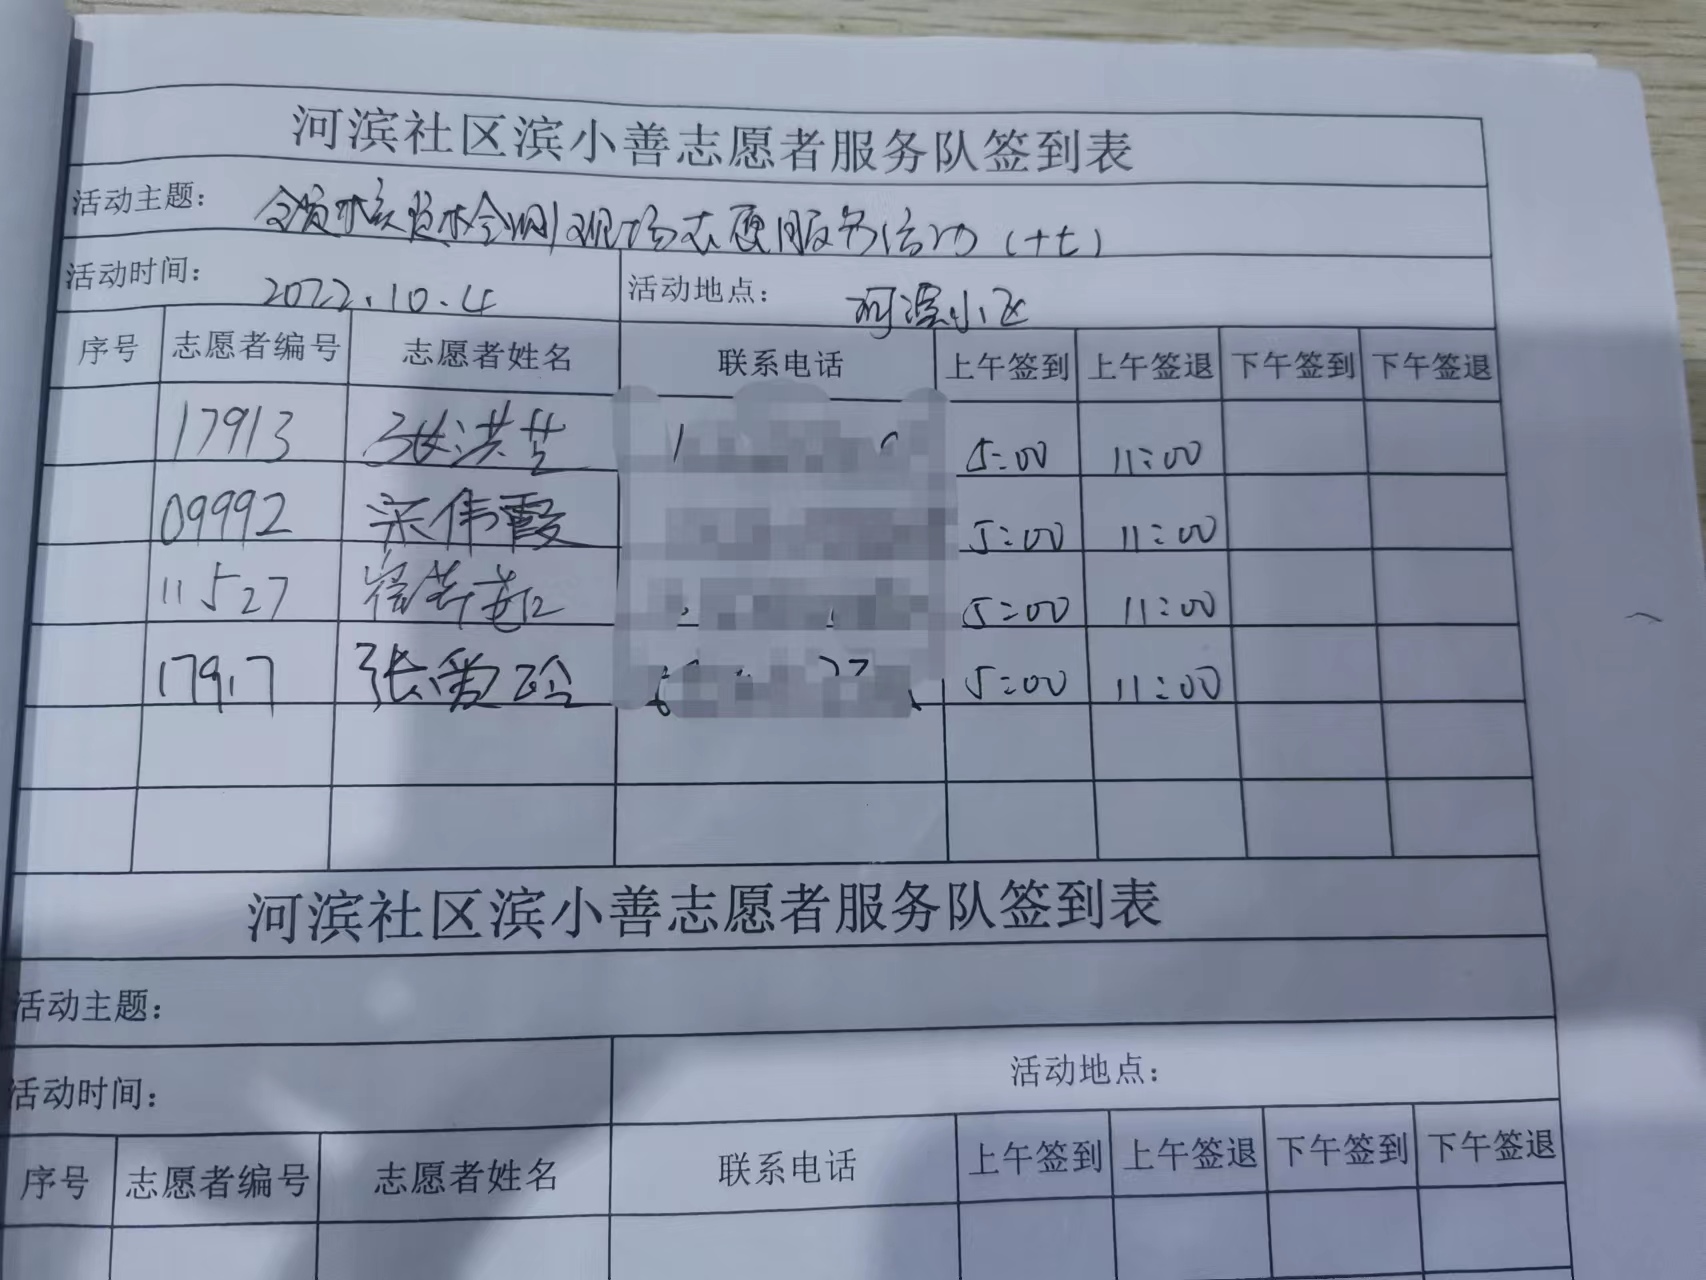 河滨社区滨小善志愿者服务队签到表
活动主题： 全员核员检测现场志愿服务活动（十七）
活动时间： 2022.10.4 活动地点： 河滨小区
序号 志愿者编号 志愿者姓名 联系电话 上午签到 上午签退 下午签到 下午签退
17913 张洪芝 5:00 11:00
09992 宋伟霞 5:00 11:00
11527 5:00 11:00
17917 张爱玲 5:00 11:00
河滨社区滨小善志愿者服务队签到表
活动主题：
活动时间： 活动地点：
序号 志愿者编号 志愿者姓名 联系电话 上午签到 上午签退 下午签到 下午签退